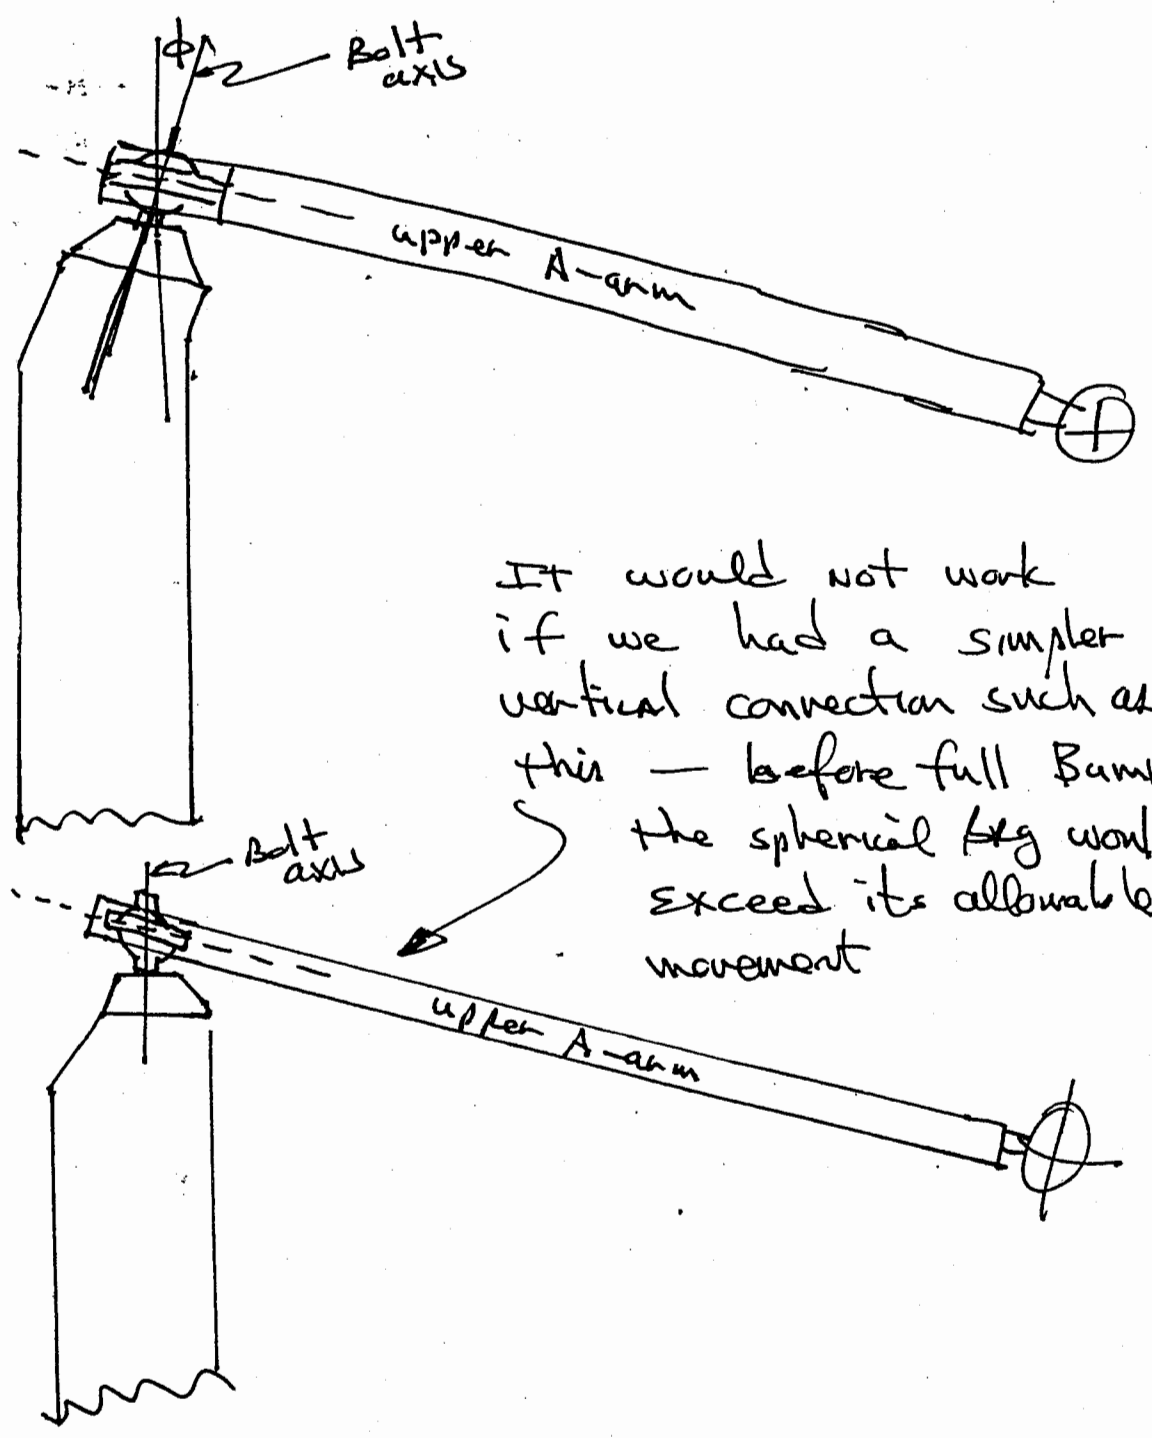 ϕ
Bolt
axis
upper A-arm
It would not work
if we had a simpler
vertical connection such as
this — before full Bum
the spherical brg woul
exceed its allowable
movement
Bolt
axis
upper A-arm